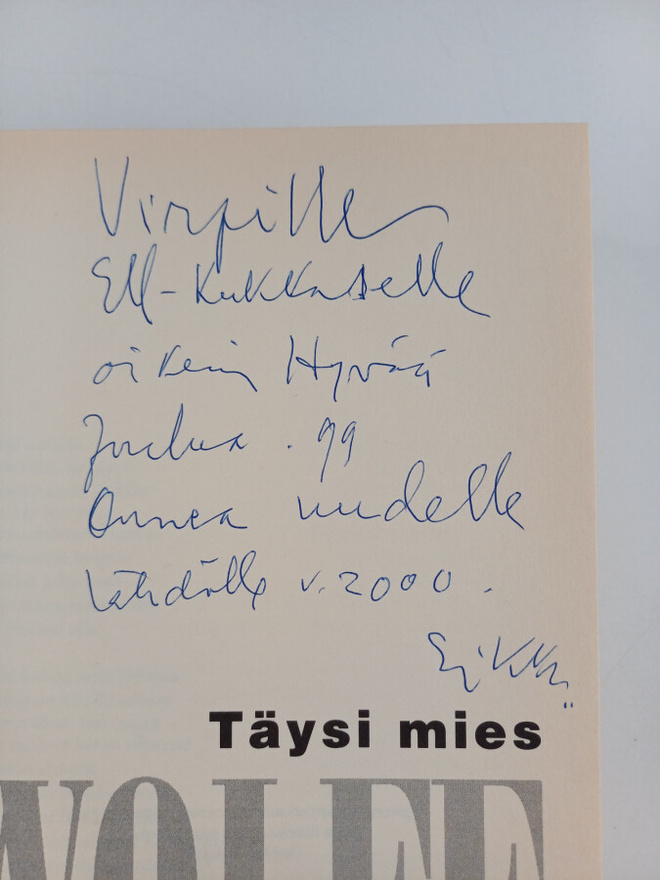 Virpille
Ell-Kukkaselle
oikein Hyvää
Joulua . 99
Onnea uudelle
lähdölle v. 2000 .
Täysi mies
WOLFE